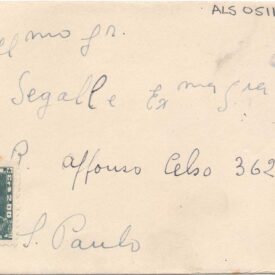 ALS 0511
Illmo Sr.
Segall e Exma Sra
R. Affonso Celso 362
CR$ 2.00
S. Paulo